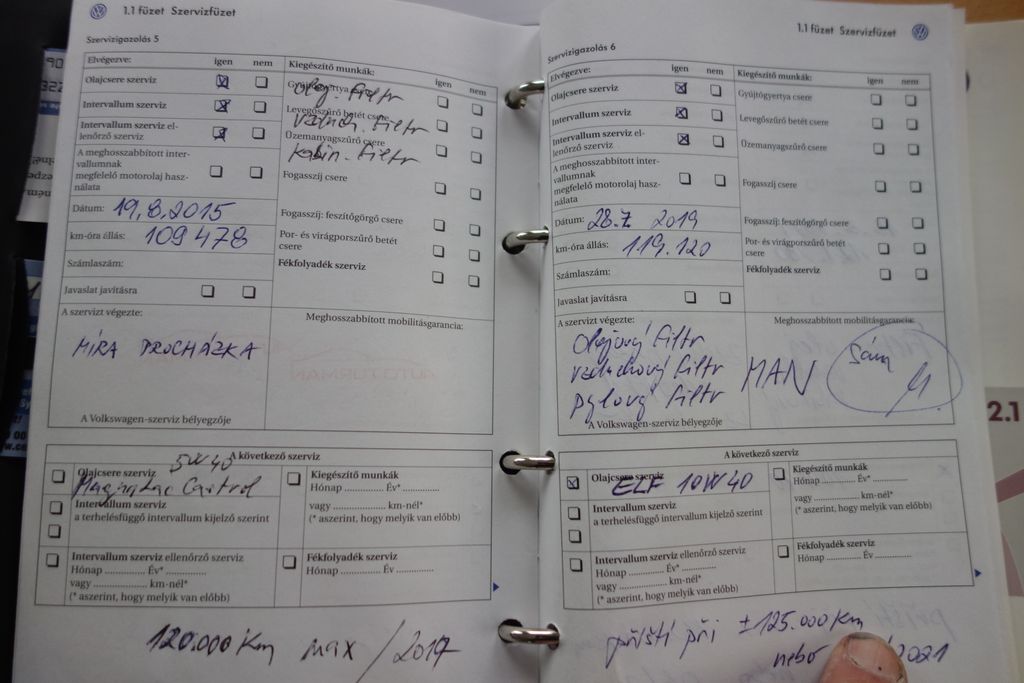 1.1 füzet Szervizfüzet
Szervizigazolás 5
Elvégezve: igen nem
Olajcsere szerviz
Intervallum szerviz
Intervallum szerviz el-
lenőrző szerviz
A meghosszabbított inter-
vallumnak
megfelelő motorolaj hasz-
nálata
Dátum: 19,8.2015
km-óra állás: 109478
Számlaszám:
Javaslat javításra
Kiegészítő munkák: igen nem
Gyújtógyertya
olej. Filtr
Levegőszűrő betét csere
vzduch. Filtr
Üzemanyagszűrő csere
Kabin. Filtr
Fogasszíj csere
Fogasszíj: feszítőgörgő csere
Por- és virágporszűrő betét
csere
Fékfolyadék szerviz
A szervizt végezte:
MÍRA PROCHÁZKA
A Volkswagen-szerviz bélyegzője
Meghosszabbított mobilitásgarancia:
AUTOTURMAN
A következő szerviz
5W40
Olajcsere szerviz
Magnatec Castrol
Intervallum szerviz
a terhelésfüggő intervallum kijelző szerint
Intervallum szerviz ellenőrző szerviz
Hónap .............. Év* ..............
vagy .................. km-nél*
(* aszerint, hogy melyik van előbb)
Kiegészítő munkák
Hónap .............. Év* .............
vagy .................. km-nél*
(* aszerint, hogy melyik van előbb)
Fékfolyadék szerviz
Hónap .............. Év .............
120.000 Km max /2017
1.1 füzet Szervizfüzet
Szervizigazolás 6
Elvégezve: igen nem
Olajcsere szerviz
Intervallum szerviz
Intervallum szerviz el-
lenőrző szerviz
A meghosszabbított inter-
vallumnak
megfelelő motorolaj hasz-
nálata
Dátum: 28.7. 2019
km-óra állás: 119.120
Számlaszám:
Javaslat javításra
Kiegészítő munkák: igen nem
Gyújtógyertya csere
Levegőszűrő betét csere
Üzemanyagszűrő csere
Fogasszíj csere
Fogasszíj: feszítőgörgő csere
Por- és virágporszűrő betét
csere
Fékfolyadék szerviz
A szervizt végezte:
Olejový Filtr
vzduchový Filtr
pylový Filtr
MAN
A Volkswagen-szerviz bélyegzője
Meghosszabbított mobilitásgarancia:
Sám
A következő szerviz
Olajcsere szerviz
ELF 10W40
Intervallum szerviz
a terhelésfüggő intervallum kijelző szerint
Intervallum szerviz ellenőrző szerviz
Hónap .............. Év* ..............
vagy .................. km-nél*
(* aszerint, hogy melyik van előbb)
Kiegészítő munkák
Hónap .............. Év* .............
vagy .................. km-nél*
(* aszerint, hogy melyik van előbb)
Fékfolyadék szerviz
Hónap .............. Év .............
příští při ±125.000 Km
nebo 2021
2.1